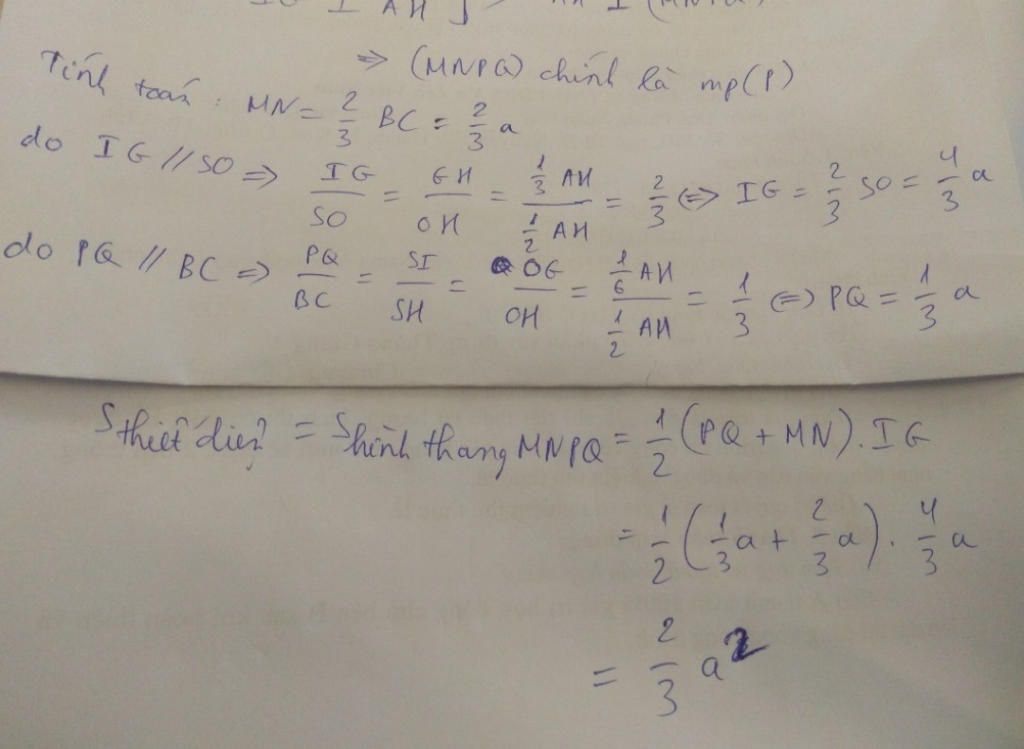 IG ⊥ AH } ⇒ AH ⊥ (MNPQ)
⇒ (MNPQ) chính là mp(P)
Tính toán: MN = 2/3 BC = 2/3 a
do IG // SO ⇒ IG/SO = GH/OH = (1/3 AH)/(1/2 AH) = 2/3 ⇔ IG = 2/3 SO = 4/3 a
do PQ // BC ⇒ PQ/BC = SI/SH = OG/OH = (1/6 AH)/(1/2 AH) = 1/3 ⇔ PQ = 1/3 a
S thiết diện = S hình thang MNPQ = 1/2 (PQ + MN). IG
= 1/2 (1/3 a + 2/3 a). 4/3 a
= 2/3 a²